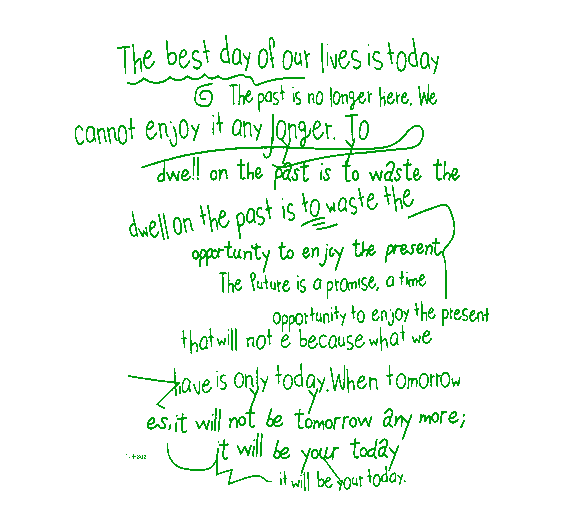 The best day of our lives is today
The past is no longer here. We
cannot enjoy it any longer. To
dwell on the past is to waste the
dwell on the past is to waste the
opportunity to enjoy the present.
The future is a promise, a time
opportunity to enjoy the present
that will not e because what we
have is only today. When tomorrow
es, it will not be tomorrow any more;
it will be your today
it will be your today.